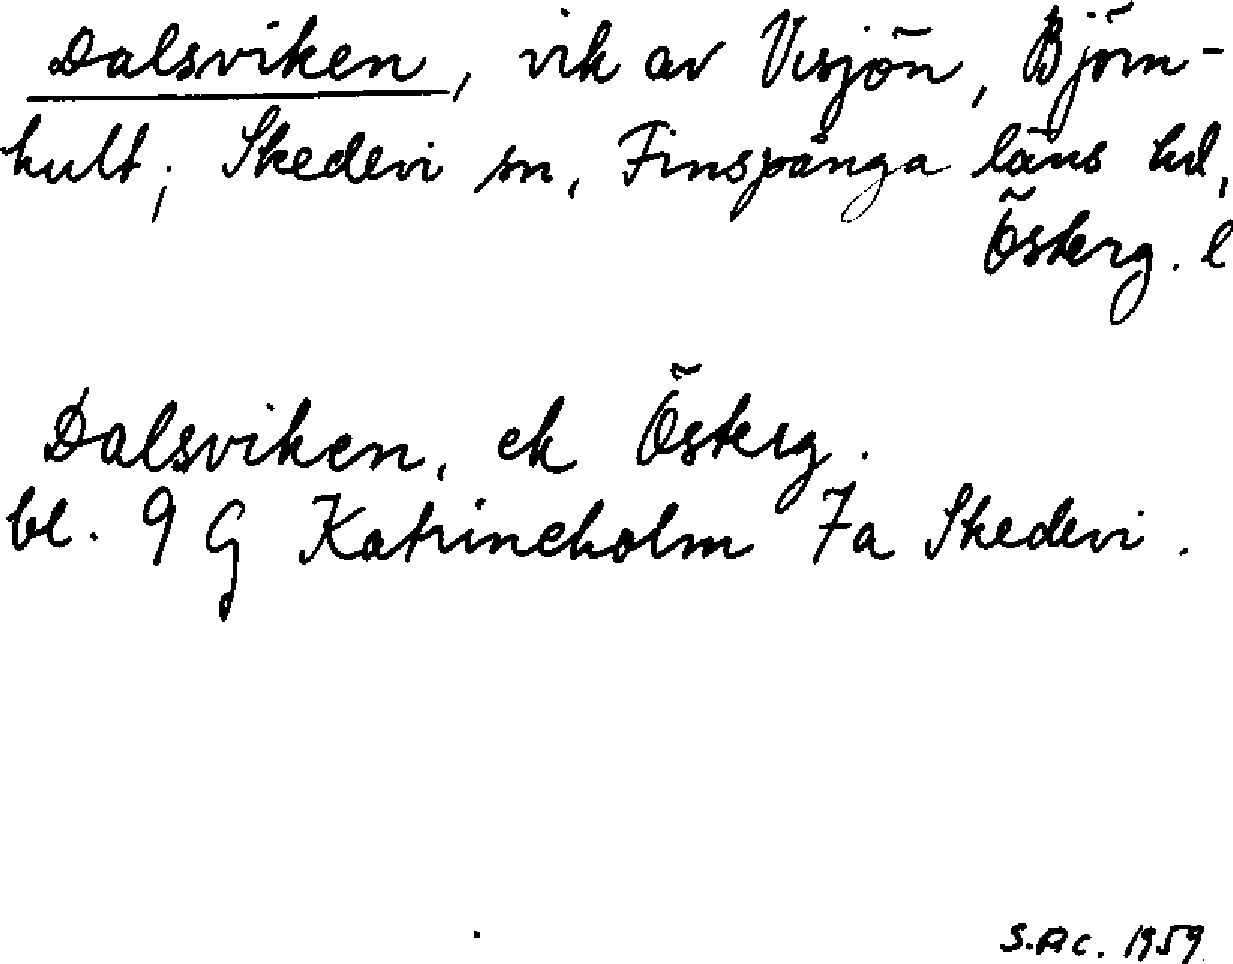 Dalsviken, vik av Visjön, Björn-
hult; Skedevi sn, Finspånga läns hd,
Österg. l
Dalsviken, ek Österg.
bl. 9 G Katrineholm 7a Skedevi.
S.Ac. 1959